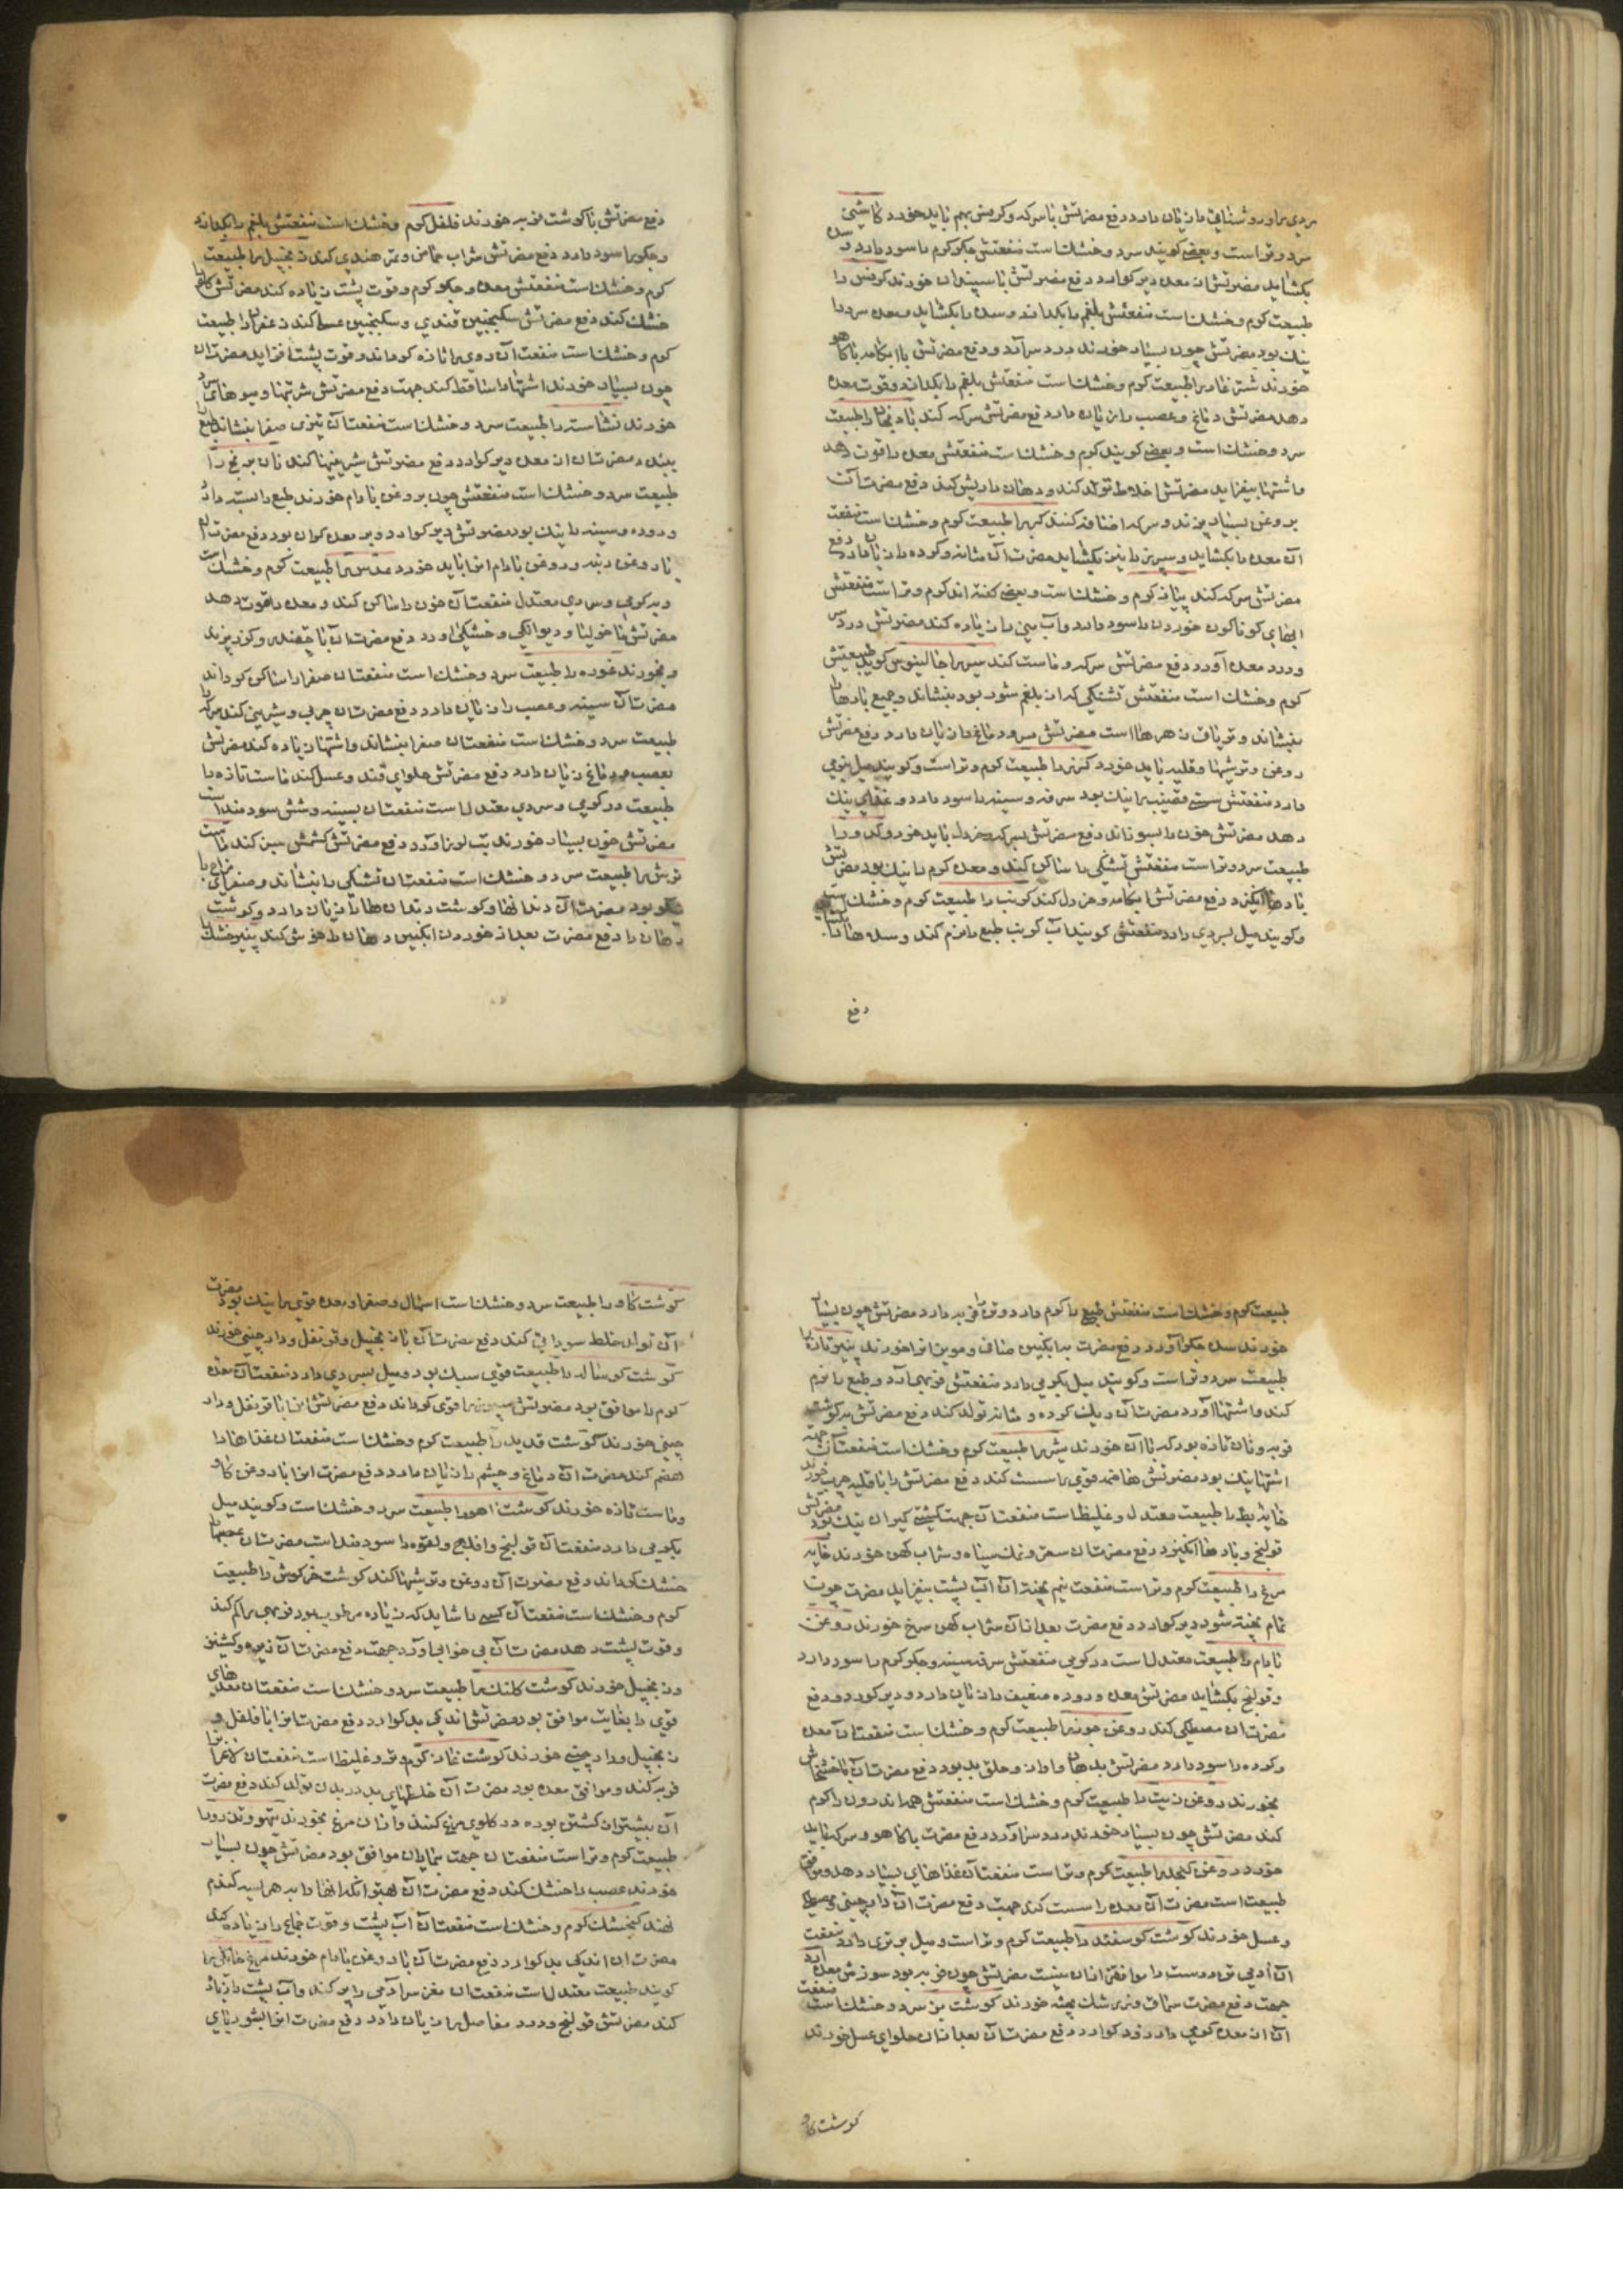 مردی را و روشنایی را زیان دارد دفع مضرتش با سرکه و کرفس بهم باید خورد کاسنی
سرد و تر است و بعضی کویند سرد و خشک است منفعتش جکر کرم را سود دارد و سده
بکشاید مضرتش از معده دیر کوارد دفع مضرتش با سپندان خورند کرفس را
طبیعت کرم و خشک است منفعتش بلغم را بکدازد و سده را بکشاید و معده سرد را
نیک بود مضرتش چون بسیار خورند درد سر آرد و دفع مضرتش با آبکامه با کاهو
خورند شترغار را طبیعت کرم و خشک است منفعتش بلغم را بکدازد و قوت معده
دهد مضرتش دماغ و عصب را زیان دارد دفع مضرتش سرکه کند بادنجان را طبیعت
سرد و خشک است و بعضی کویند کرم و خشک است منفعتش معده را قوت دهد
و اشتها بیفزاید مضرتش اخلاط تولد کند و دهان را ریش کند دفع مضرت آن
بروغن بسیار پزند و سرکه اضافه کنند کبر را طبیعت کرم و خشک است منفعت
آن معده را بکشاید و سپرز را نیز بکشاید مضرت آن مثانه و کرده را زیان دارد دفع
مضرتش سرکه کند پیاز کرم و خشک است و بعضی کفته اند کرم و تر است منفعتش
آبهای کوناکون خوردن را سود دارد و آب منی را زیاده کند مضرتش درد سر
و درد معده آورد دفع مضرتش سرکه و ماست کند سیر را جالینوس کوید طبیعتش
کرم و خشک است منفعتش تشنکی که از بلغم شور بود بنشاند و جمیع بادها را
بنشاند و تریاق زهرهاست مضرتش سر و دماغ را زیان دارد دفع مضرتش
روغن و ترشیها و قلیه باید خورد کزر را طبیعت کرم و تر است و کویند میل بنرمی
دارد منفعتش سستی قضیب را نیک بود سرفه و سینه را سود دارد و غذای نیک
دهد مضرتش خون را بسوزاند دفع مضرتش بسرکه و خردل باید خورد کدو را
طبیعت سرد و تر است منفعتش تشنکی را ساکن کند و معده کرم را نیک بود مضرتش
بادها انکیزد دفع مضرتش آبکامه و خردل کند کرنب را طبیعت کرم و خشک است
و کویند میل بسردی دارد منفعتش کویند آب کرنب طبع را نرم کند و سدها را بکشاید
دفع
دفع مضرتش با کوشت فربه خورند فلفل کرم و خشک است منفعتش بلغم را بکدازد
و جکر را سود دارد دفع مضرتش شراب حماض و تمر هندی کند زنجبیل را طبیعت
کرم و خشک است منفعتش معده و جکر کرم و قوت پشت زیاده کند مضرتش کام را
خشک کند دفع مضرتش سکنجبین قندی و سکنجبین عسل کند زعفران را طبیعت
کرم و خشک است منفعت آن روی را تازه کرداند و قوت پشت افزاید مضرت آن
چون بسیار خورند اشتها را ساقط کند جهت دفع مضرتش شربتها و میوهای سرد
خورند نشاسته را طبیعت سرد و خشک است منفعت آن تیزی صفرا بنشاند طبع را
ببندد مضرت آن از معده دیر کوارد دفع مضرتش شیرینیها کند نان برنج را
طبیعت سرد و خشک است منفعتش چون بروغن بادام خورند طبع را بسته دارد
و روده و سینه را نیک بود مضرتش دیر کوارد و بر معده کران بود دفع مضرت آن
با روغن دنبه و روغن بادام آنرا باید خورد عدس را طبیعت کرم و خشک است
و به کرمی و سردی معتدل منفعت آن خون را ساکن کند و معده را قوت دهد
مضرتش ماخولیا و دیوانکی و خشکی آورد دفع مضرت آن با چغندر و کزر پزند
و بخورند غوره را طبیعت سرد و خشک است منفعت آن صفرا را ساکن کرداند
مضرت آن سینه و عصب را زیان دارد دفع مضرت آن چربی و شیرینی کند سرکه را
طبیعت سرد و خشک است منفعت آن صفرا بنشاند و اشتها زیاده کند مضرتش
بعصب و دماغ زیان دارد دفع مضرتش حلوای قند و عسل کند ماست تازه را
طبیعت در کرمی و سردی معتدل است منفعت آن بسینه و شش سودمند است
مضرتش چون بسیار خورند تب لرز آورد دفع مضرتش کشمش سبز کند ماست
ترش را طبیعت سرد و خشک است منفعت آن تشنکی را بنشاند و صفرای مزاج را
نیکو بود مضرت آن دندانها و کوشت دندانها را زیان دارد و کوشت
دهان را دفع مضرت بعد از خوردن انکبین دهان را خوش کند پنیر خشک را
طبیعت کرم و خشک است منفعتش طبع را کرم دارد و تن را فربه دارد مضرتش چون بسیار
خورند سده جکر آورد دفع مضرت به انکبین صافی و مویز آنرا خورند پنیر تازه را
طبیعت سرد و تر است و کویند میل بکرمی دارد منفعتش فربهی آرد و طبع را نرم
کند و اشتها آورد مضرت آن ریک کرده و مثانه تولد کند دفع مضرتش به کوشت
فربه و نان تازه بود که با آن خورند شیر را طبیعت کرم و خشک است منفعت آن جهة
اشتها نیک بود مضرتش هاضمه قوی را سست کند دفع مضرتش را با قلیه چرب خورند
خایه بط را طبیعت معتدل و غلیظ است منفعت آن جهت کشتی کیران نیک بود مضرتش
قولنج و بادها انکیزد دفع مضرت آن سعتر و نمک سیاه و شراب کهن خورند خایه
مرغ را طبیعت کرم و تر است منفعت نیم پخته آن آب پشت بیفزاید مضرت چون
تمام پخته شود دیر کوارد دفع مضرت بعد از آن شراب کهن سرخ خورند روغن
بادام را طبیعت معتدل است در کرمی منفعتش سرفه سینه و جکر کرم را سود دارد
و قولنج بکشاید مضرتش معده و روده ضعیف را زیان دارد و دیر کوارد دفع
مضرت آن مصطکی کند روغن جوز را طبیعت کرم و خشک است منفعت آن معده
و کرده را سود دارد مضرتش بدهان و آواز و حلق بد بود دفع مضرت آن با خشخاش
بخورند روغن زیت را طبیعت کرم و خشک است منفعتش همه اندرون را کرم
کند مضرتش چون بسیار خورند درد سر آورد دفع مضرت با کاهو و سرکه باید
خورد روغن کنجد را طبیعت کرم و تر است منفعت آن غذاهای بسیار دهد و موافق
طبیعت است مضرت آن معده را سست کند جهت دفع مضرت آن دارچینی و مصطکی
و عسل خورند کوشت کوسفند را طبیعت کرم و تر است و میل بتری دارد منفعت
آن آدمی تن درست را موافقتر از آن نیست مضرتش چون فربه بود سوزش معده آرد
جهت دفع مضرت سماق و زرشک پخته خورند کوشت بز سرد و خشک است منفعت
آن از معده کرمی دارد زود کوارد دفع مضرت آن بعد از آن حلوای عسل خورند
کوشت کاو
کوشت کاو را طبیعت سرد و خشک است اسهال و صفرا و معده قوی را نیک بود مضرت
آن تولد خلط سودایی کند دفع مضرت آن با زنجبیل و قرنفل و دارچینی خورند
کوشت کوساله را طبیعت قوی سبک بود و میل بسردی دارد منفعت آن معده
کرم را موافق بود مضرتش سپرز را قوی کرداند دفع مضرتش آنرا با قرنفل و دار
چینی خورند کوشت قدید را طبیعت کرم و خشک است منفعت آن غذاها را
هضم کند مضرت آن دماغ و چشم را زیان دارد دفع مضرت آنرا با روغن کاو
و ماست تازه خورند کوشت آهو را طبیعت سرد و خشک است و کویند میل
بکرمی دارد منفعت آن قولنج و افلیج و لقوه را سودمند است مضرت آن عصبها
خشک کرداند دفع مضرت آن روغن و ترشیها کند کوشت خرکوش را طبیعت
کرم و خشک است منفعت آن کسی را شاید که زیاده مرطوب بود فربهی را کم کند
و قوت پشت دهد مضرت آن بی خوابی آورد جهت دفع مضرت آن زیره و کشنیز
و زنجبیل خورند کوشت کلنک را طبیعت سرد و خشک است منفعت آن معدهای
قوی را بغایت موافق بود مضرتش اندکی بد کوارد دفع مضرت آنرا با فلفل و
زنجبیل و دارچینی خورند کوشت غاز کرم و تر و غلیظ است منفعت آن لاغر را
فربه کند و موافق معده بود مضرت آن خلطهای بد در بدن تولد کند دفع مضرت
آن پیشتر از کشتن بوره در کلوی مرغ کنند و از آن مرغ بخورند تیهو و تذرو را
طبیعت کرم و تر است منفعت آن جهت بیماران موافق بود مضرتش چون بسیار
خورند عصب را خشک کند دفع مضرت آن بهتر آنکه آنها را به هریسه کندم
نهند کنجشک کرم و خشک است منفعت آن آب پشت و قوت جماع را زیاده کند
مضرت آن اندکی بد کوارد دفع مضرت آن با روغن بادام خورند مرغ خانکی را
کویند طبیعت معتدل است منفعت آن مغز سر آدمی را پر کند و آب پشت را زیاد
کند مضرتش قولنج و درد مفاصل را زیان دارد دفع مضرت آنرا بشوربای